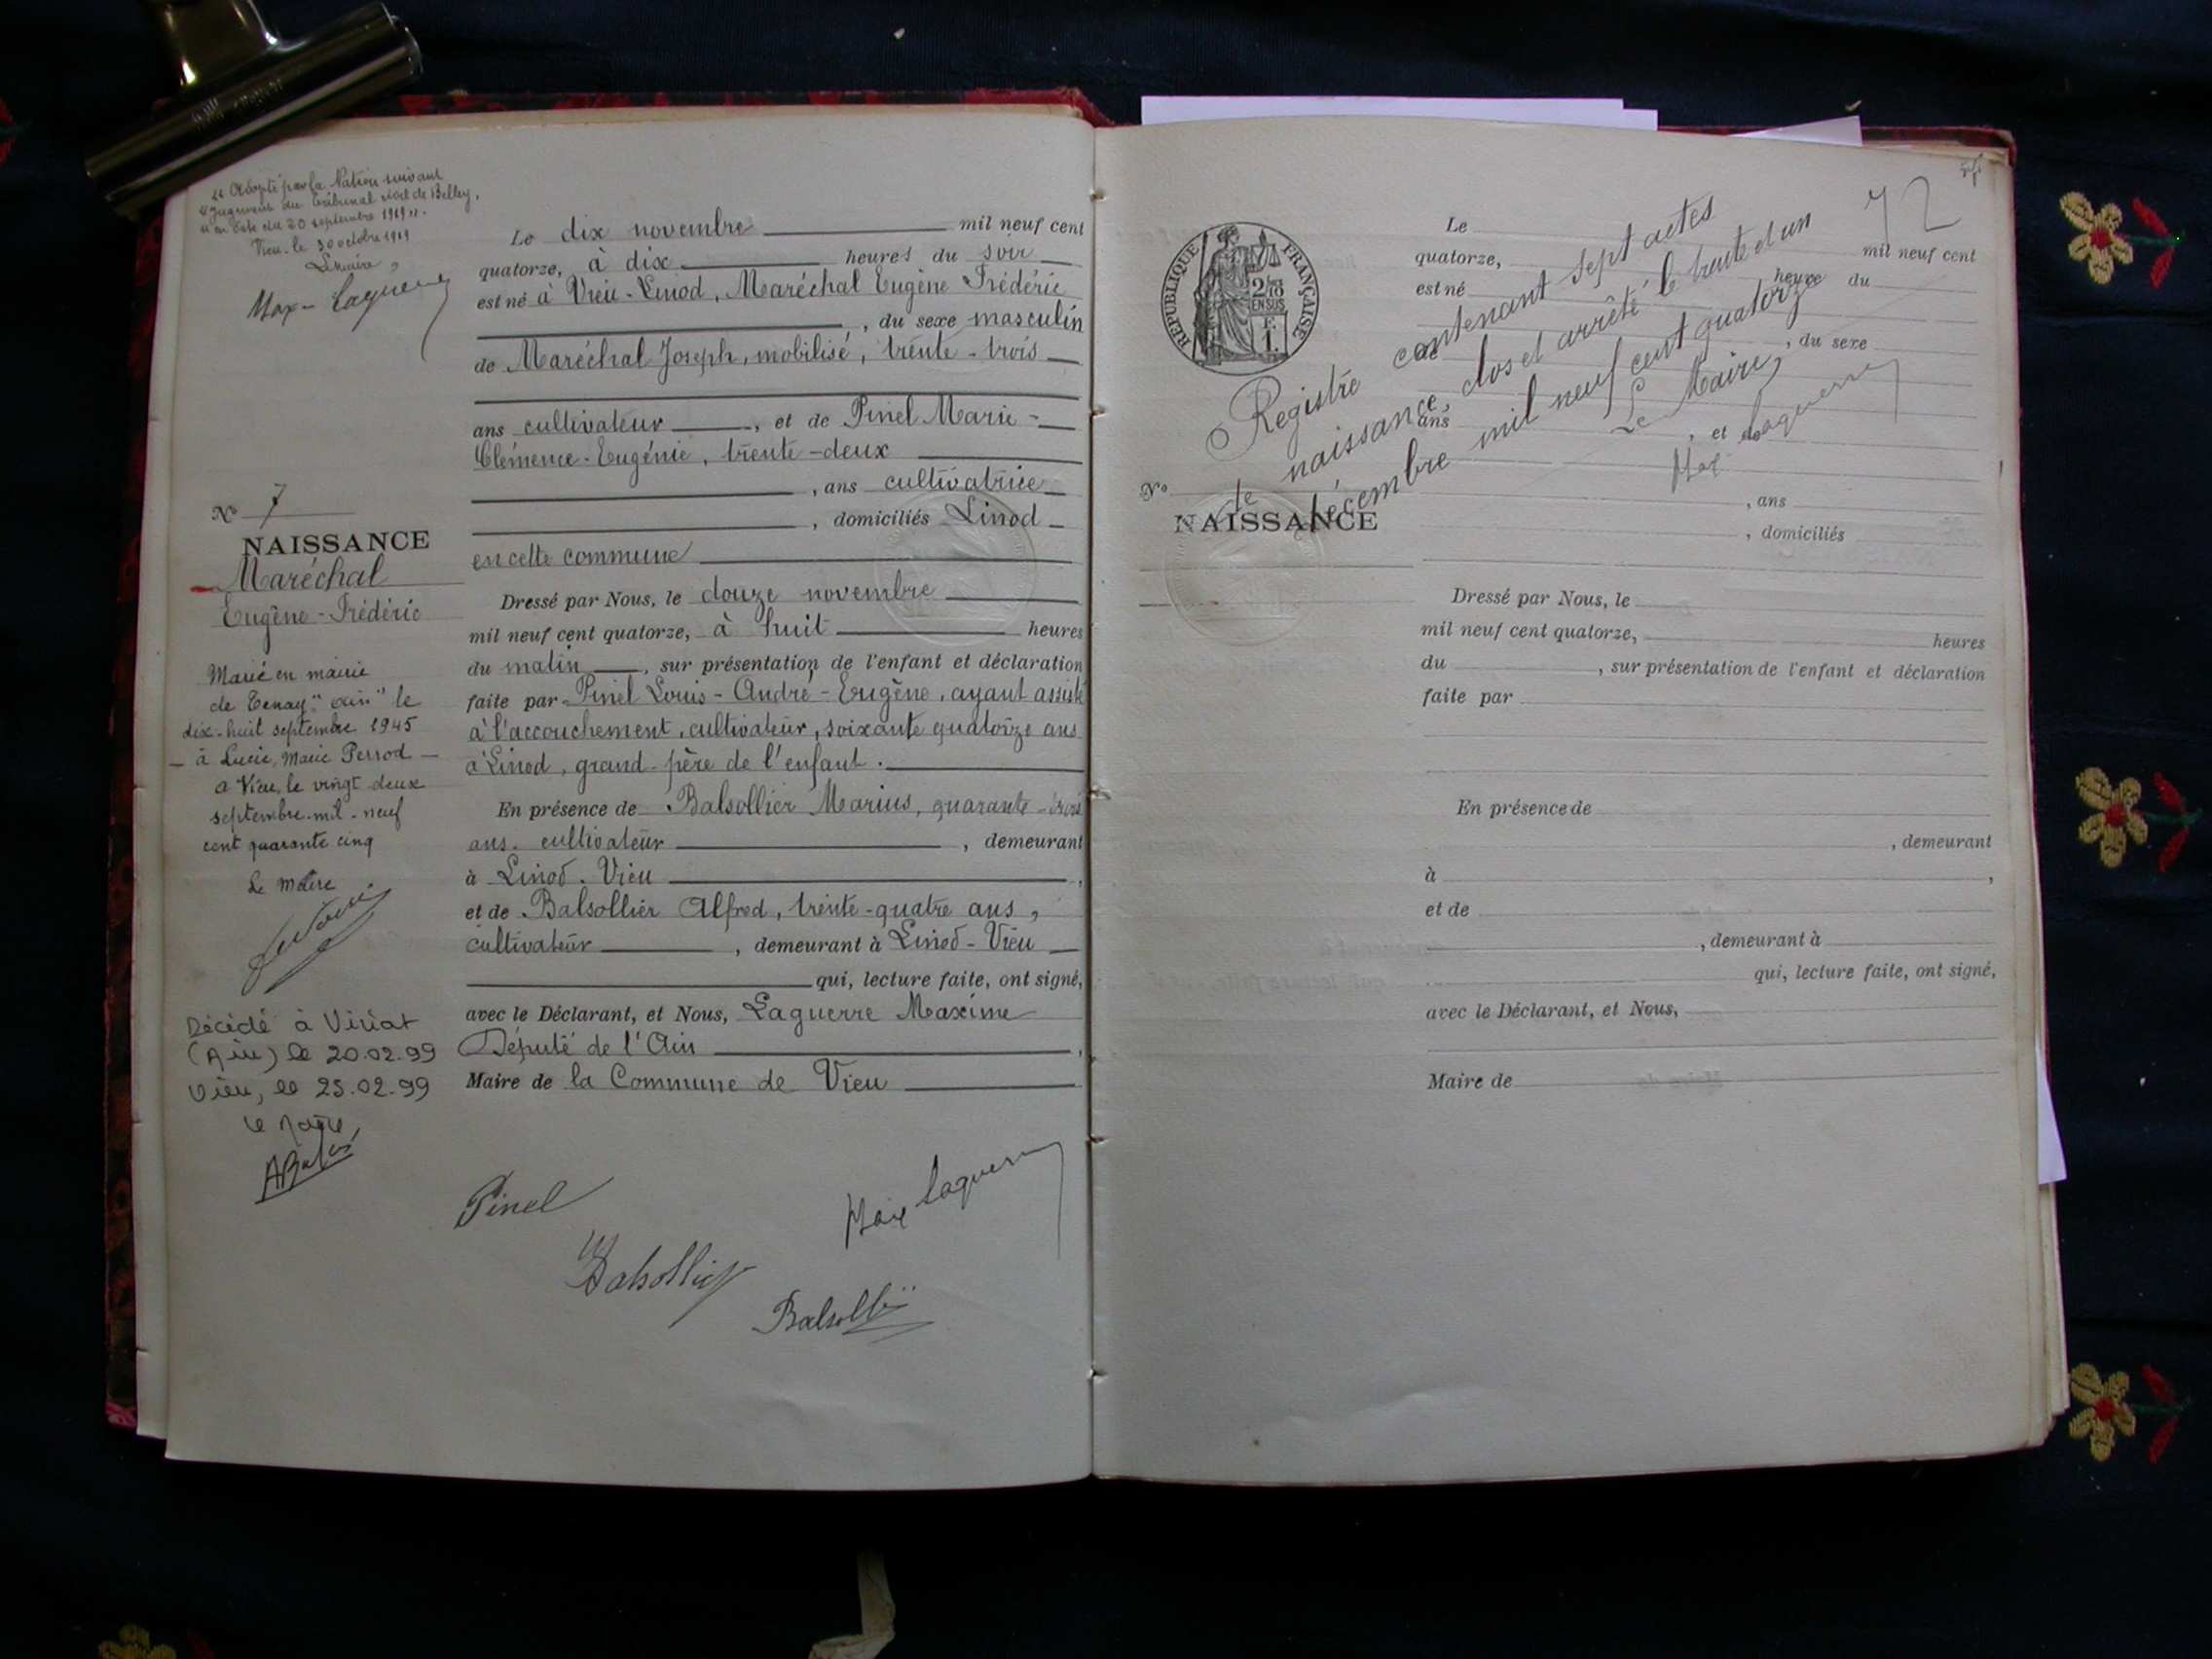 "Adopté par la Nation suivant
"Jugement du Tribunal civil de Belley,
"en date du 20 septembre 1919".
Vieu. le 30 octobre 1919
Le maire,
Max-Laguerre
N° 7
NAISSANCE
Maréchal
Eugène-Frédéric
Marié en mairie
de Tenay "ain" le
dix-huit septembre 1945
- à Lucie, Marie Perrod -
a Vieu, le vingt deux
septembre-mil-neuf
cent quarante cinq
Le maire
Décédé à Viriat
(Ain) le 20.02.99
Vieu, le 25.02.99
Le Maire,
Le dix novembre mil neuf cent
quatorze, à dix heures du soir
est né à Vieu-Linod, Maréchal Eugène Frédéric
, du sexe masculin
de Maréchal Joseph, mobilisé, trente-trois
ans cultivateur , et de Pinel Marie-
Clémence-Eugénie, trente-deux
, ans cultivatrice
, domiciliés Linod
en cette commune
Dressé par Nous, le douze novembre
mil neuf cent quatorze, à huit heures
du matin , sur présentation de l'enfant et déclaration
faite par Pinel Louis-André-Eugène, ayant assisté
à l'accouchement, cultivateur, soixante quatorze ans
à Linod, grand-père de l'enfant.
En présence de Balsollier Marius, quarante-trois
ans. cultivateur , demeurant
à Linod. Vieu ,
et de Balsollier Alfred, trente-quatre ans,
cultivateur , demeurant à Linod-Vieu
qui, lecture faite, ont signé,
avec le Déclarant, et Nous, Laguerre Maxime
Député de l'Ain ,
Maire de la Commune de Vieu
Pinel
Max Laguerre
Balsollier
Balsollier
72
REPUBLIQUE FRANÇAISE
2/10
EN SUS
1 F.
Registre contenant sept actes
de naissance, clos et arrêté le trente et un
décembre mil neuf cent quatorze
Le Maire,
Max Laguerre
N°
NAISSANCE
Le mil neuf cent
quatorze, heure du
est né
, du sexe
de
ans , et de
, ans
, domiciliés
Dressé par Nous, le
mil neuf cent quatorze, heures
du , sur présentation de l'enfant et déclaration
faite par
En présence de
, demeurant
à ,
et de
, demeurant à
qui, lecture faite, ont signé,
avec le Déclarant, et Nous,
Maire de